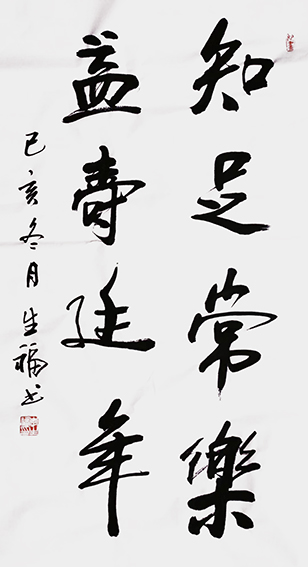 知足常樂
益壽延年
己亥冬月生福书